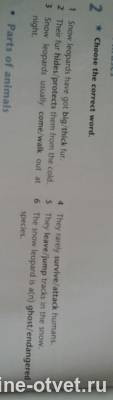 2 * Choose the correct word.
1 Snow leopards have got big/thick fur.
2 Their fur hides/protects them from the cold.
3 Snow leopards usually come/walk out at
night.
4 They rarely survive/attack humans.
5 They leave/jump tracks in the snow.
6 The snow leopard is a(n) ghost/endangered
species.
• Parts of animals
ine-otvet.ru